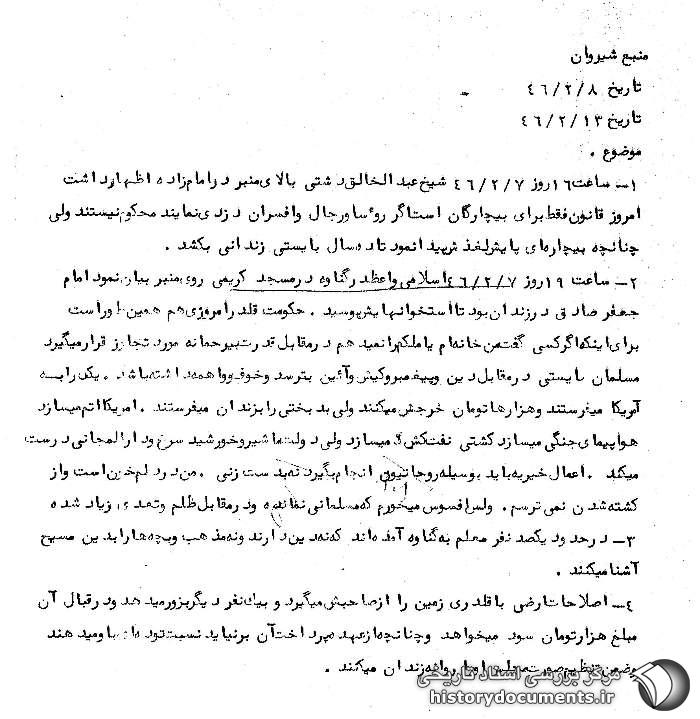 منبع شیروان
تاریخ ۴۶/۲/۸
تاریخ ۴۶/۲/۱۳
موضوع .
۱- ساعت ۱۶ روز ۴۶/۲/۷ شیخ عبدالخالق دشتی بالای منبر در امام زاده اظهار داشت
امروز قانون فقط برای بیچارگان است اگر روسا و رجال و افسران دزدی نمایند محکوم نیستند ولی
چنانچه بیچاره‌ای پایش لغزش پیدا نمود تا ده سال بایستی زندانی بکشد .
۲- ساعت ۱۹ روز ۴۶/۲/۷ اسلامی واعظ در گناوه در مسجد کریمی روی منبر بیان نمود امام
جعفر صادق در زندان بود تا استخوانهایش پوسید . حکومت قلدر امروزی هم همین طور است
برای اینکه اگر کسی گفت من خانه‌ام یا ملکم را نمیدهم در مقابل قدرت بیرحمانه مورد تجاوز قرار میگیرد
مسلمان بایستی در مقابل دین و پیغمبر و کیش و آئین بترسد و خوف و واهمه داشته باشد . یک رابه
آمریکا میفرستند و هزارها تومان خرجش میکنند ولی بدبختی را بزندان میفرستند . امریکا اتم میسازد
هواپیمای جنگی میسازد کشتی نفت کش میسازد ولی دولت ما شیر و خورشید سرخ و دارالمجانی درست
میکند . اعمال خیریه باید بوسیله روحانیون انجام بگیرد نه بدست زنی . من در دلم خون است و از
کشته شدن نمی ترسم . ولی افسوس میخورم که مسلمانی نمانده و در مقابل ظلم و تعدی زیاد شده
۳- در حدود یکصد نفر معلم به گناوه آمده‌اند که نه دین دارند و نه مذهب و بچه‌ها را بدین مسیح
آشنا میکنند .
۴- اصلاحات ارضی با قلدری زمین را از صاحبش میگیرد و بیک نفر دیگر بزور میدهد و در قبال آن
مبلغ هزار تومان سود میخواهد و چنانچه از عهده پرداخت آن برنیاید نسبت توده‌ای باو میدهند
و ضمن تنظیم صورت مجلس او را روانه زندان میکنند .
مرکز بررسی اسناد تاریخی
historydocuments.ir